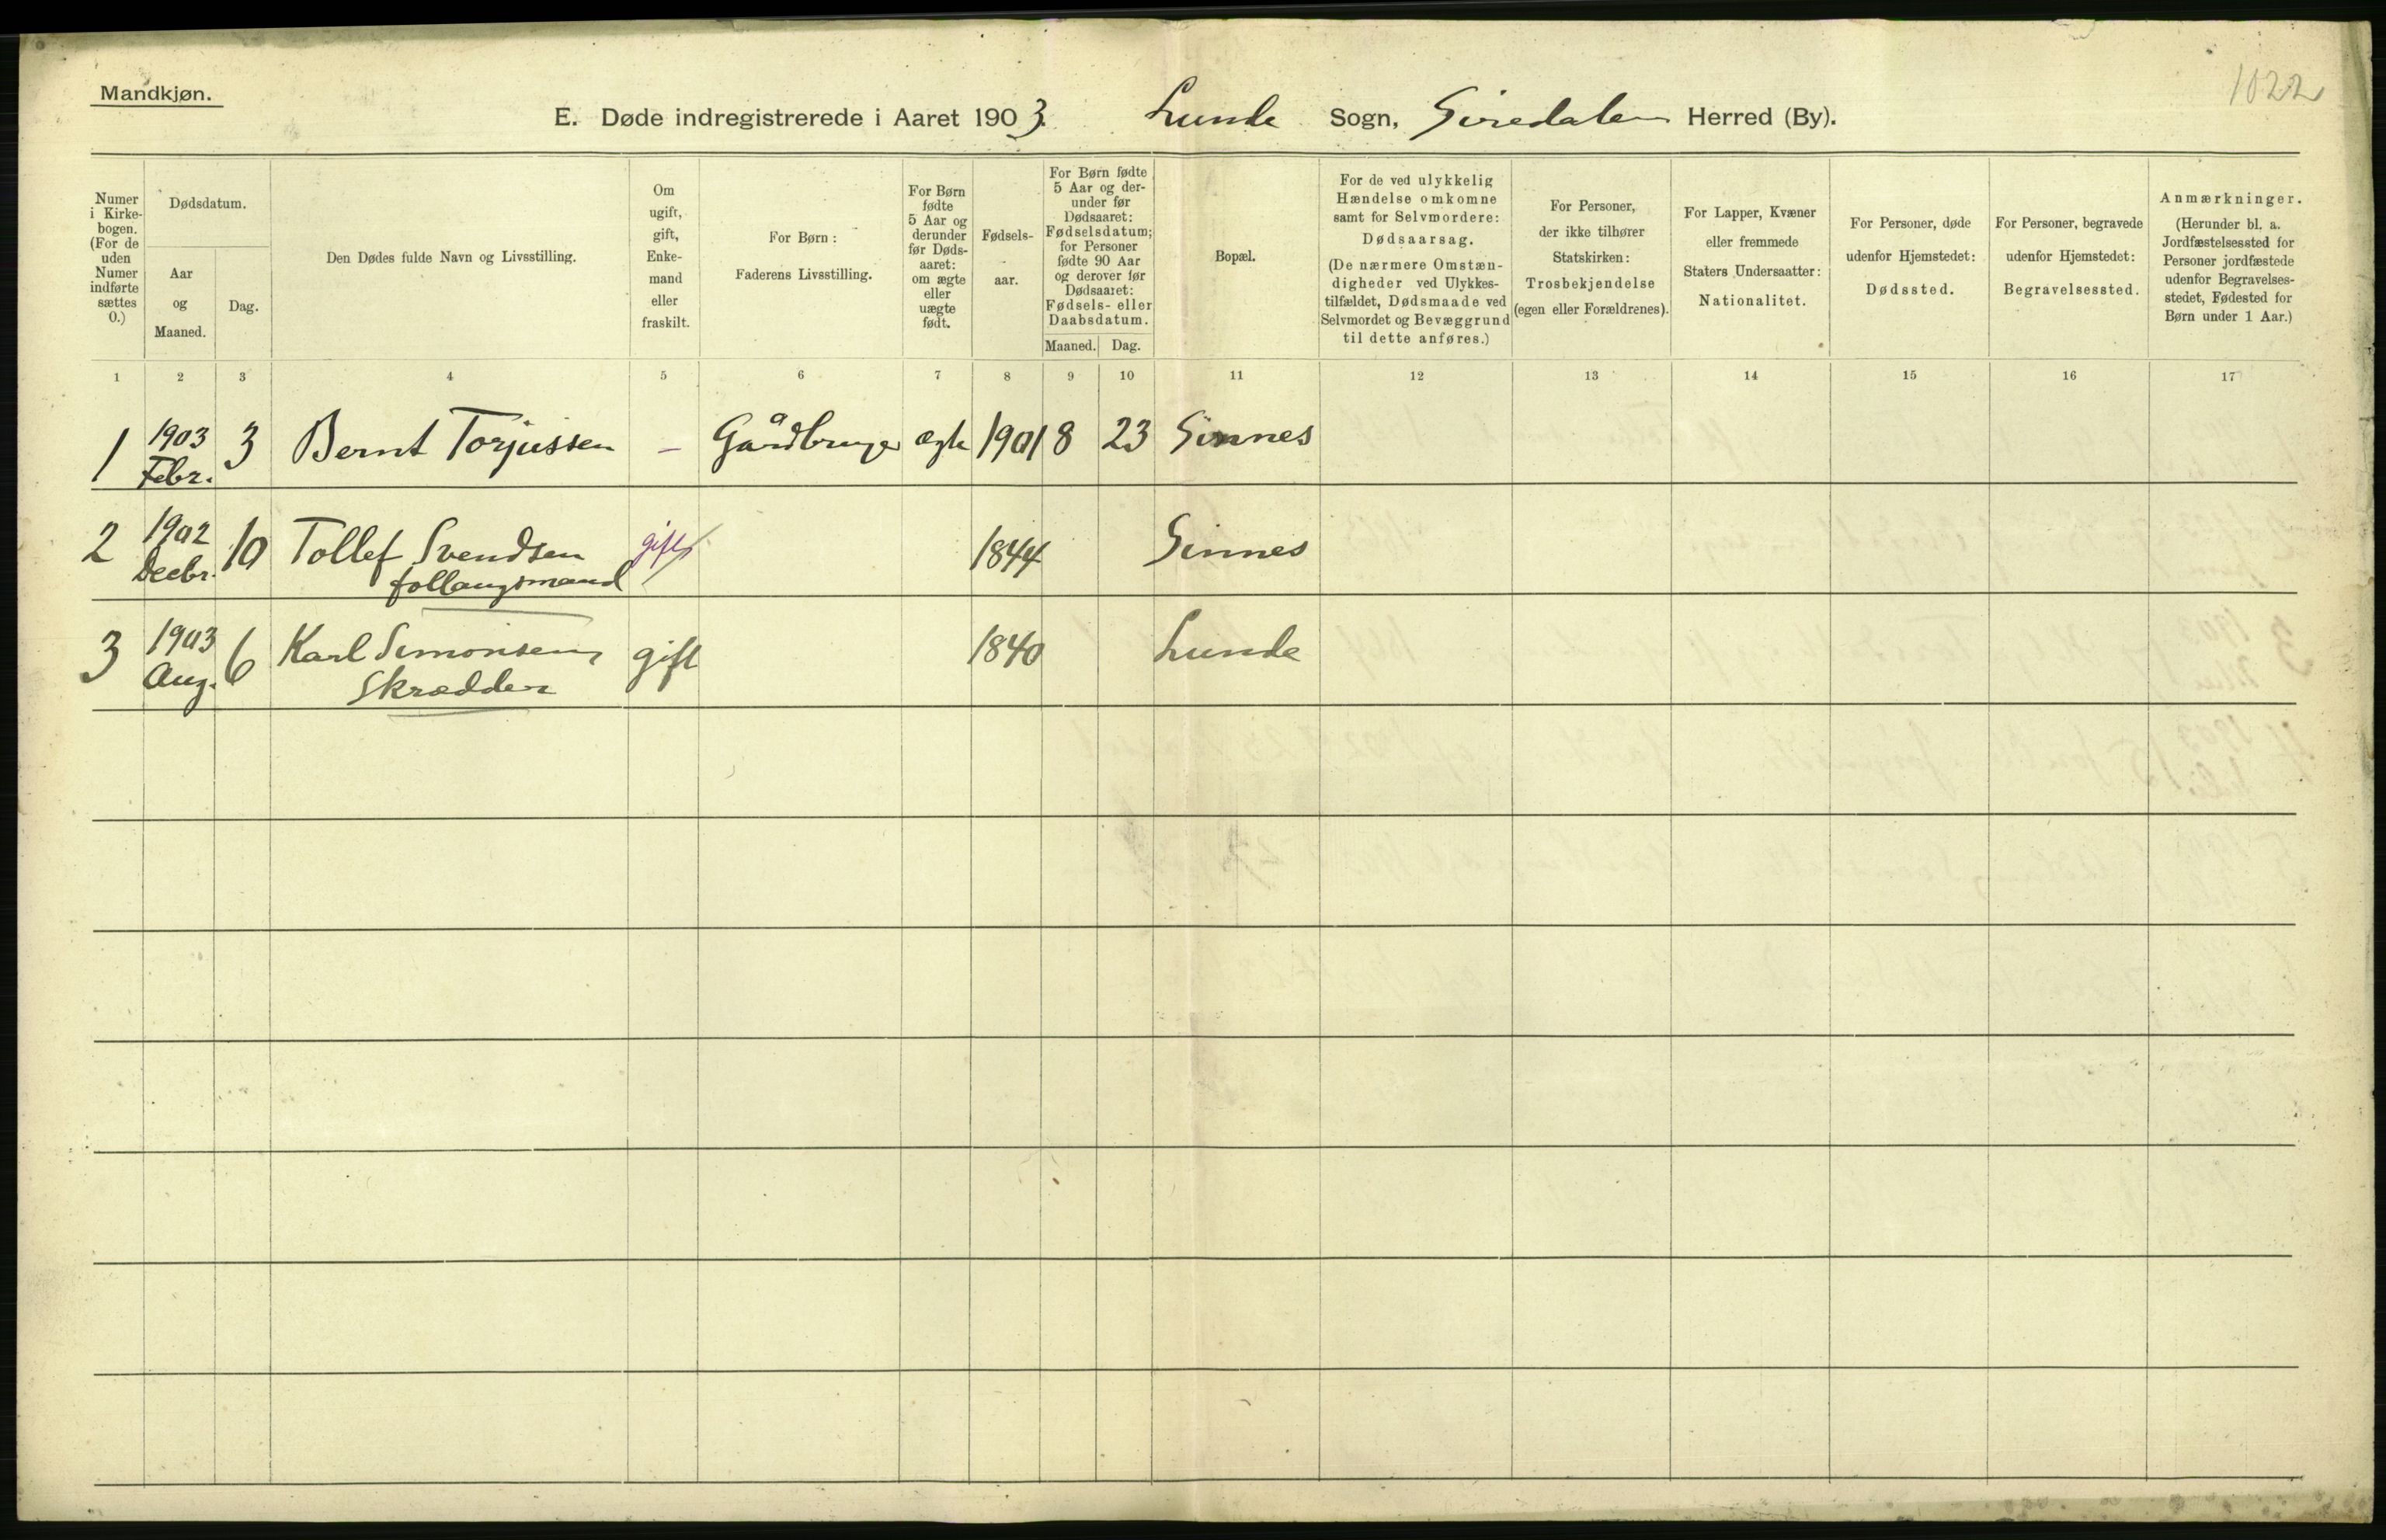 Mandkjøn.
1022
E. Døde indregistrerede i Aaret 1903. Lunde Sogn, Siredalen Herred (By).
Numer
i Kirke-
bogen.
(For de
uden
Numer
indførte
sættes
0.)
Dødsdatum.
Aar
og
Maaned.
Dag.
Den Dødes fulde Navn og Livsstilling.
Om
ugift,
gift,
Enke-
mand
eller
fraskilt.
For Børn:
Faderens Livsstilling.
For Børn
fødte
5 Aar og
derunder
før Døds-
aaret:
om ægte
eller
uægte
født.
Fødsels-
aar.
For Børn fødte
5 Aar og der-
under før
Dødsaaret:
Fødselsdatum;
for Personer
fødte 90 Aar
og derover før
Dødsaaret:
Fødsels- eller
Daabsdatum.
Maaned. Dag.
Bopæl.
For de ved ulykkelig
Hændelse omkomne
samt for Selvmordere:
Dødsaarsag.
(De nærmere Omstæn-
digheder ved Ulykkes-
tilfældet, Dødsmaade ved
Selvmordet og Bevæggrund
til dette anføres.)
For Personer,
der ikke tilhører
Statskirken:
Trosbekjendelse
(egen eller Forældrenes).
For Lapper, Kvæner
eller fremmede
Staters Undersaatter:
Nationalitet.
For Personer, døde
udenfor Hjemstedet:
Dødssted.
For Personer, begravede
udenfor Hjemstedet:
Begravelsessted.
Anmærkninger.
(Herunder bl. a.
Jordfæstelsessted for
Personer jordfæstede
udenfor Begravelses-
stedet, Fødested for
Børn under 1 Aar.)
1 2 3 4 5 6 7 8 9 10 11 12 13 14 15 16 17
1 1903 Febr. 3 Bernt Torjussen - Gårdbruger ægte 1901 8 23 Sinnes
2 1902 Decbr. 10 Tollef Svendsen gift 1844 Sinnes
follaugsmand
3 1903 Aug. 6 Karl Simonsen, gift 1840 Lunde
Skrædder